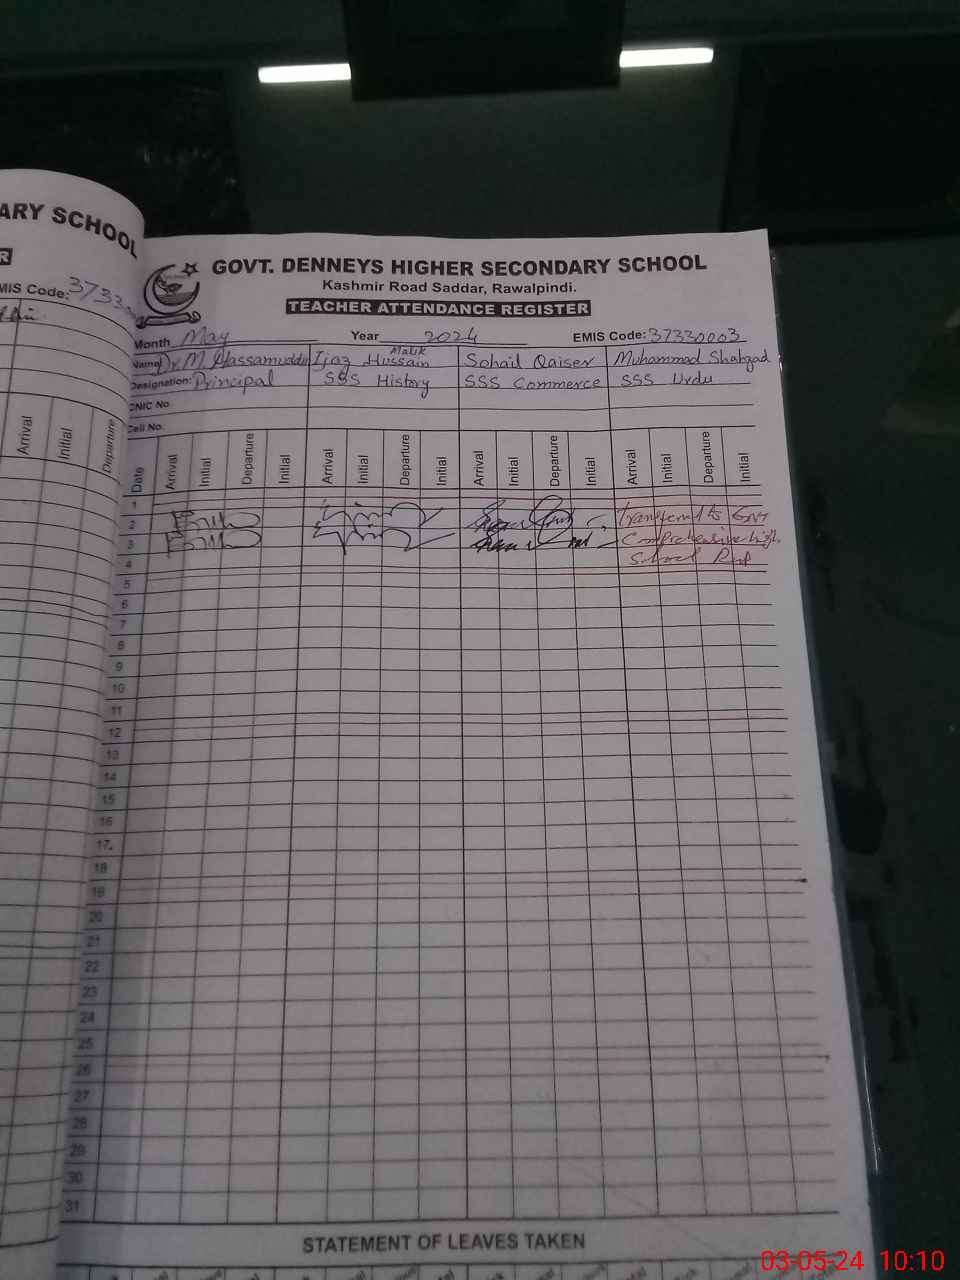 ARY SCHOOL
R
MIS Code: 37330
Arrival
Initial
Departure
GOVT. DENNEYS HIGHER SECONDARY SCHOOL
Kashmir Road Saddar, Rawalpindi.
TEACHER ATTENDANCE REGISTER
Month May Year 2024 EMIS Code: 37330003
Name Dr. M. Hassamuddin Ijaz Hussain Malik Sohail Qaiser Muhammad Shahzad
Designation: Principal SSS History SSS Commerce SSS Urdu
CNIC No.
Cell No.
Date Arrival Initial Departure Initial Arrival Initial Departure Initial Arrival Initial Departure Initial Arrival Initial Departure Initial
1
2 Transferred to Govt
3 Comprehensive high
4 School Rwp
5
6
7
8
9
10
11
12
13
14
15
16
17
18
19
20
21
22
23
24
25
26
27
28
29
30
31
STATEMENT OF LEAVES TAKEN
03-05-24 10:10